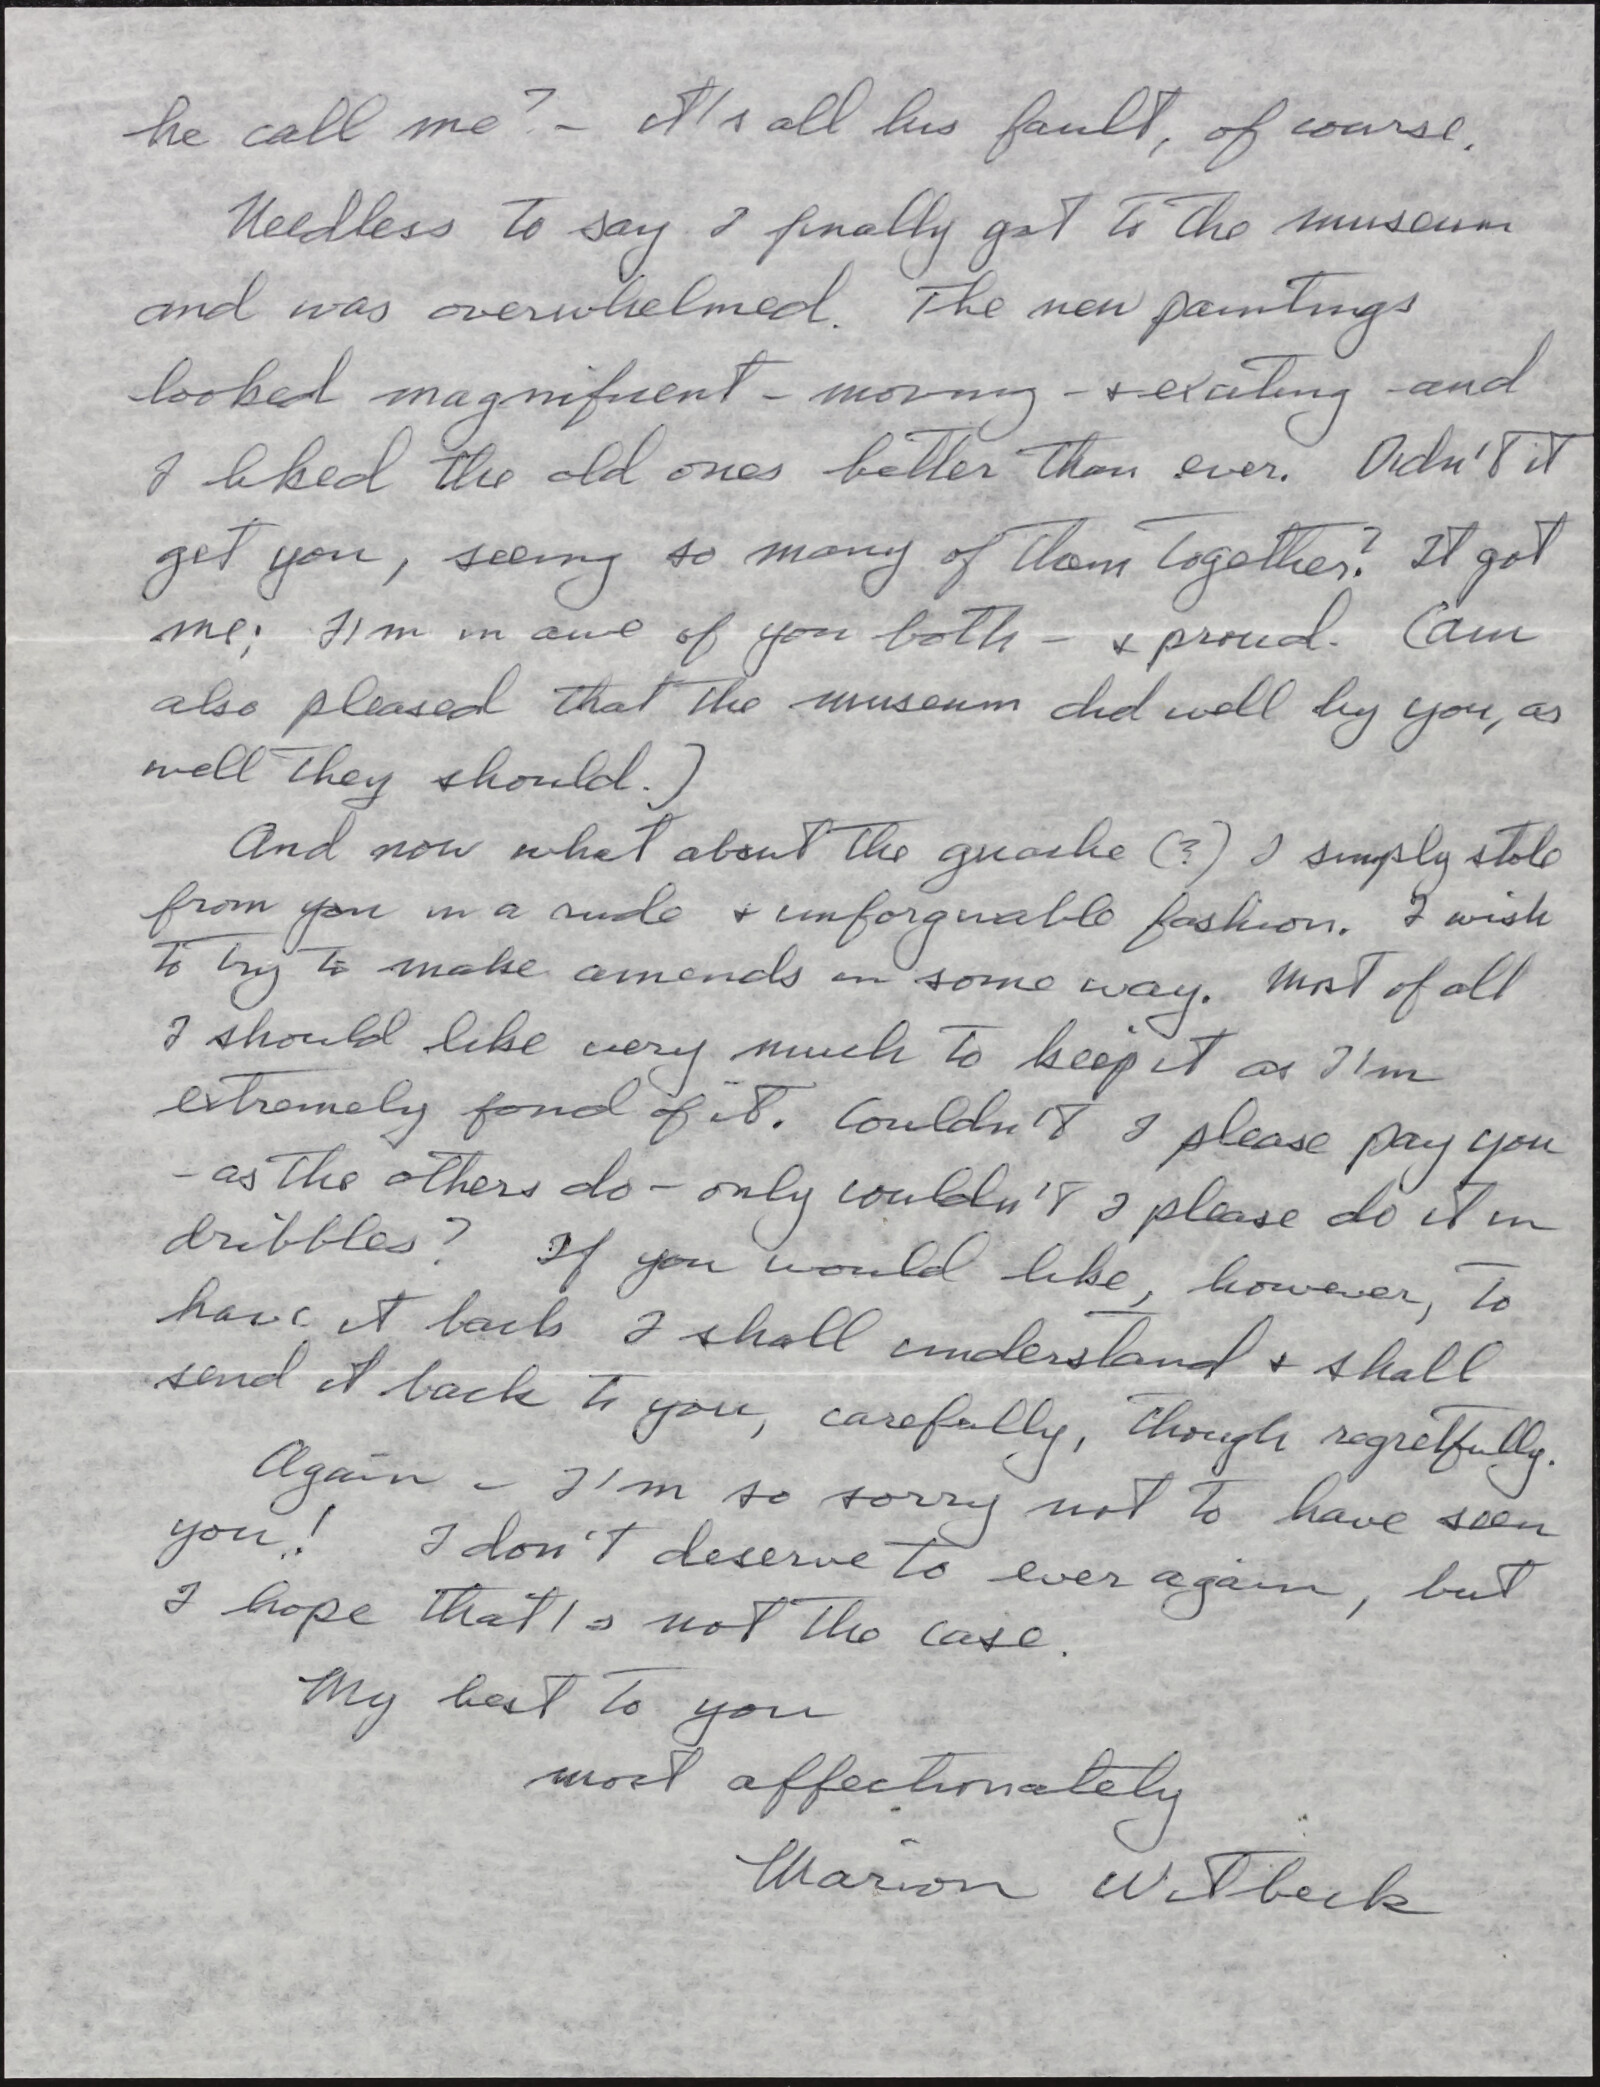 he call me? - it's all his fault, of course.
Needless to say I finally got to the museum
and was overwhelmed. The new paintings
looked magnificent - moving - & exciting - and
I liked the old ones better than ever. Didn't it
get you, seeing so many of them together? It got
me; I'm in awe of you both - & proud. (am
also pleased that the museum did well by you, as
well they should.)
And now what about the guache (?) I simply stole
from you in a rude & unforgivable fashion. I wish
to try to make amends in some way. Most of all
I should like very much to keep it as I'm
extremely fond of it. Couldn't I please pay you
- as the others do - only couldn't I please do it in
dribbles? If you would like, however, to
have it back I shall understand & shall
send it back to you, carefully, though regretfully.
Again - I'm so sorry not to have seen
you! I don't deserve to ever again, but
I hope that's not the case.
My best to you
most affectionately
Marion Witbeck